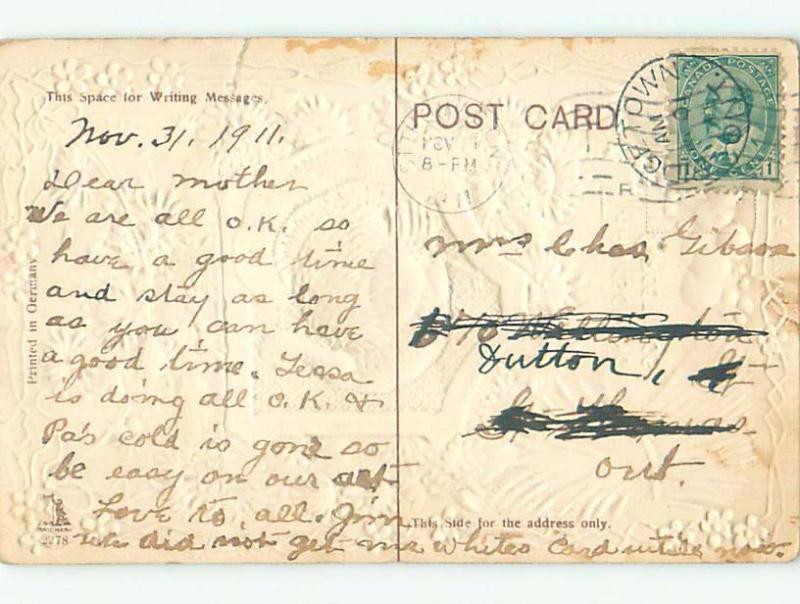 This Space for Writing Messages.
Nov. 31, 1911.
Dear mother
We are all O.K. so
have a good time
and stay as long
as you can have
a good time. Tessa
is doing all O.K. &
Pa's cold is gone so
be easy on our act
Love to, all. Jim
we did not get Mr Whites Card untill now.
Printed in Germany
2278
POST CARD
8-PM
CANADA POSTAGE
ONE CENT
1
RIDGETOWN
AM
ONT
Mrs Chas. Gibson
Wellington
Dutton, St
St Thomas
Ont.
This Side for the address only.